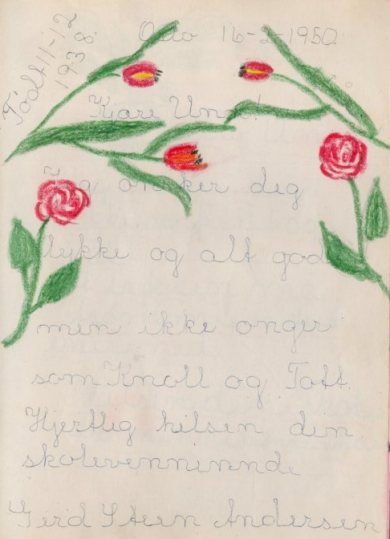 Født 11-12
1938
Oslo 16-2-1950
Kjære Unni!
Jeg ønsker deg
lykke og alt godt
men ikke onger
som Knoll og Tott.
Hjertlig hilsen din
skolevenninnde
Gerd Steen Andersen